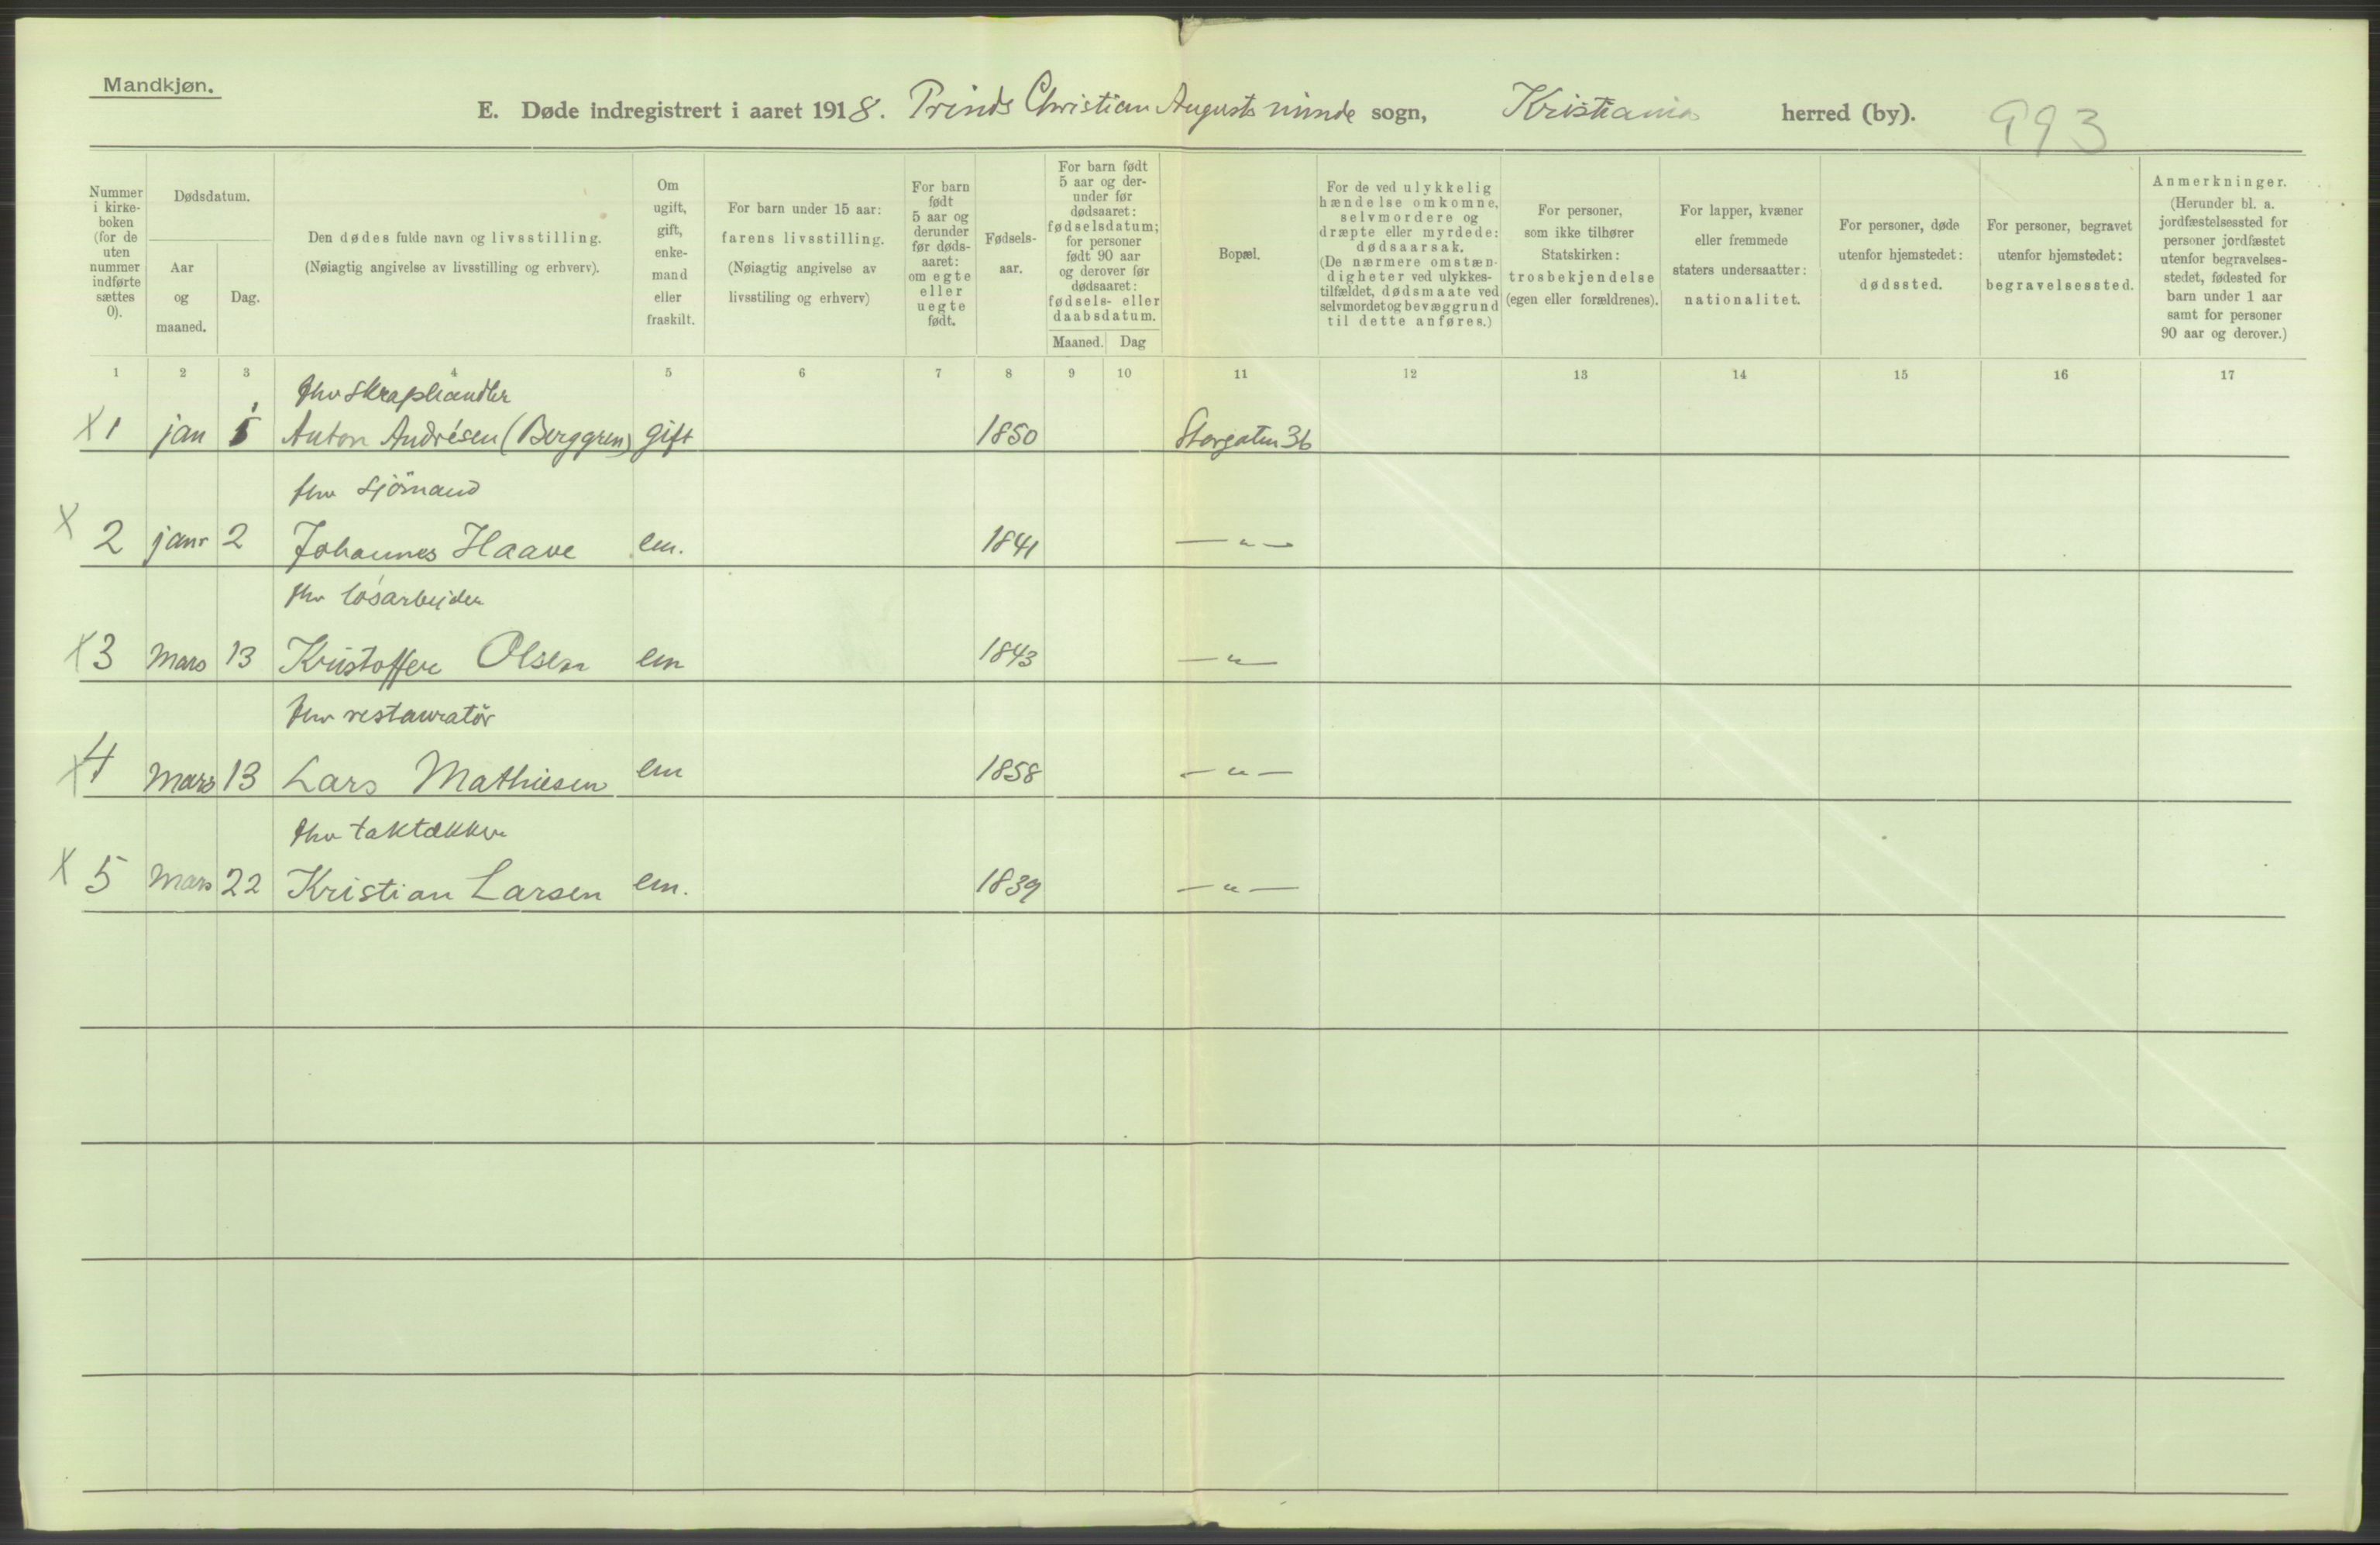 Mandkjøn.
E. Døde indregistrert i aaret 1918. Prinds Christian Augusts minde sogn, Kristiania herred (by). 993
Nummer
i kirke-
boken
(for de
uten
nummer
indførte
sættes
0).
Dødsdatum.
Aar
og
maaned.
Dag.
Den dødes fulde navn og livsstilling.
(Nøiagtig angivelse av livsstilling og erhverv).
Om
ugift,
gift,
enke-
mand
eller
fraskilt.
For barn under 15 aar:
farens livsstilling.
(Nøiagtig angivelse av
livsstiling og erhverv)
For barn
født
5 aar og
derunder
før døds-
aaret:
om egte
eller
uegte
født.
Fødsels-
aar.
For barn født
5 aar og der-
under før
dødsaaret:
fødselsdatum;
for personer
født 90 aar
og derover før
dødsaaret:
fødsels- eller
daabsdatum.
Maaned. Dag
Bopæl.
For de ved ulykkelig
hændelse omkomne,
selvmordere og
dræpte eller myrdede:
dødsaarsak.
(De nærmere omstæn-
digheter ved ulykkes-
tilfældet, dødsmaate ved
selvmordet og bevæggrund
til dette anføres.)
For personer,
som ikke tilhører
Statskirken:
trosbekjendelse
(egen eller forældrenes).
For lapper, kvæner
eller fremmede
staters undersaatter:
nationalitet.
For personer, døde
utenfor hjemstedet:
dødssted.
For personer, begravet
utenfor hjemstedet:
begravelsessted.
Anmerkninger.
(Herunder bl. a.
jordfæstelsessted for
personer jordfæstet
utenfor begravelses-
stedet, fødested for
barn under 1 aar
samt for personer
90 aar og derover.)
1 2 3 4 5 6 7 8 9 10 11 12 13 14 15 16 17
fhv skraphandler
X 1 jan 1 Anton Andrésen (Berggren) gift 1850 Storgaten 36
fhv sjömand
X 2 janr 2 Johannes Haave em. 1841 — " —
fhv løsarbeider
X 3 Mars 13 Kristoffer Olsen em 1843 — " —
fhv restauratör
X 4 Mars 13 Lars Mathiesen em 1858 — " —
fhv taktækker
X 5 Mars 22 Kristian Larsen em. 1839 — " —